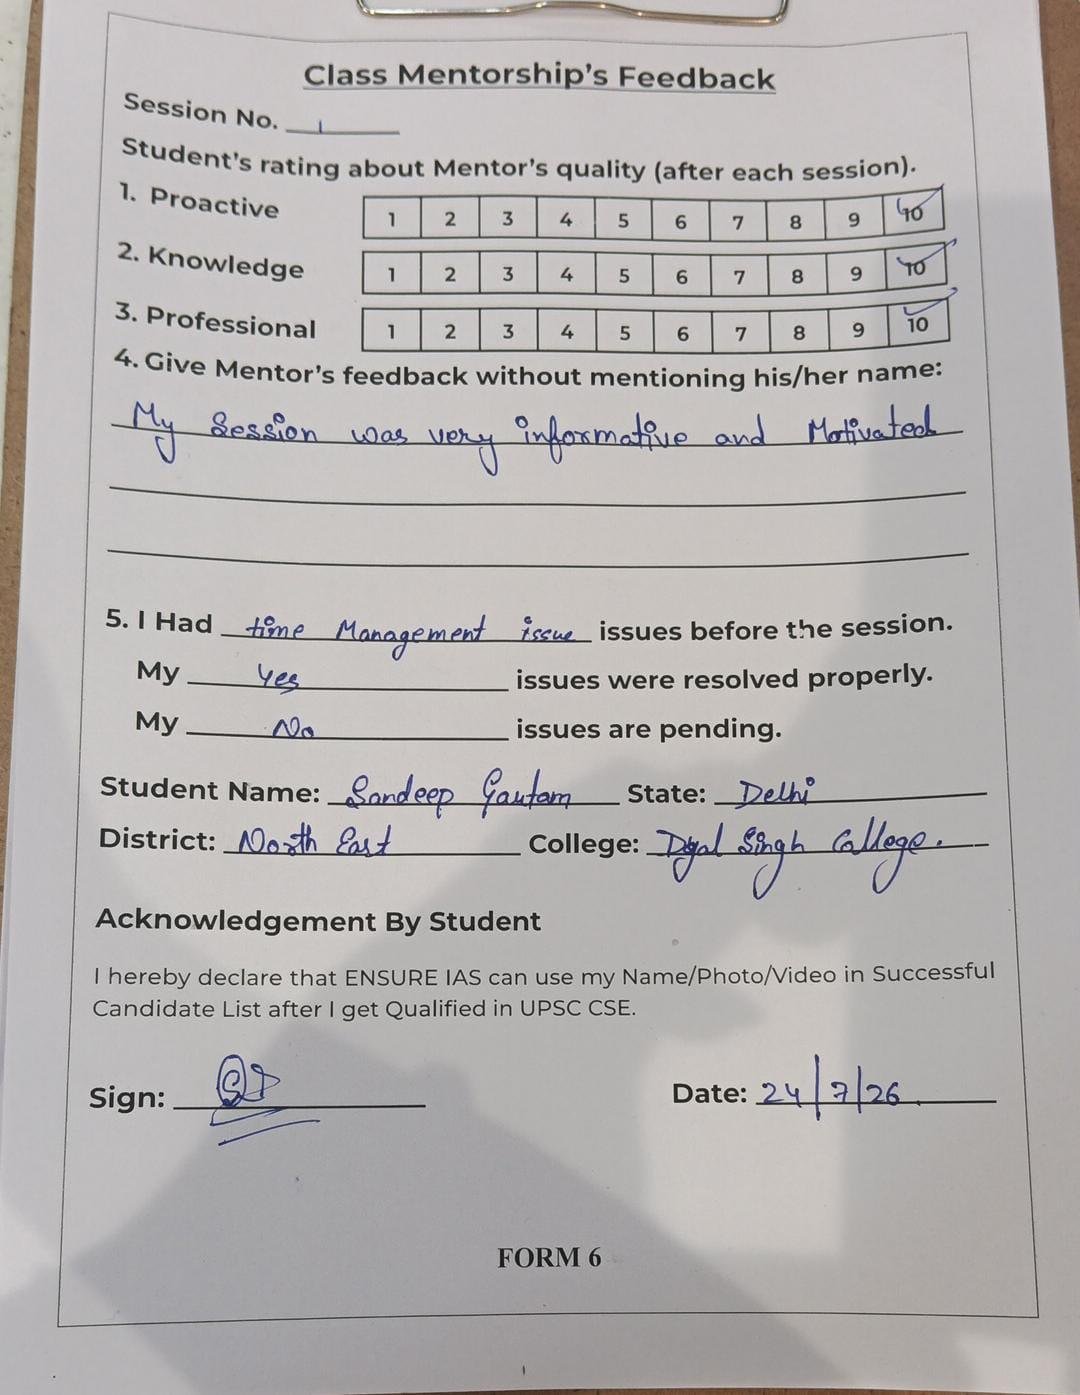 Class Mentorship's Feedback
Session No. 1
Student's rating about Mentor's quality (after each session).
1. Proactive 1 2 3 4 5 6 7 8 9 10
2. Knowledge 1 2 3 4 5 6 7 8 9 10
3. Professional 1 2 3 4 5 6 7 8 9 10
4. Give Mentor's feedback without mentioning his/her name:
My Session was very informative and Motivated
5. I Had time Management issue issues before the session.
My Yes issues were resolved properly.
My No issues are pending.
Student Name: Sandeep Gautam State: Delhi
District: North East College: Dyal Singh College.
Acknowledgement By Student
I hereby declare that ENSURE IAS can use my Name/Photo/Video in Successful
Candidate List after I get Qualified in UPSC CSE.
Sign: Date: 24/7/26
FORM 6